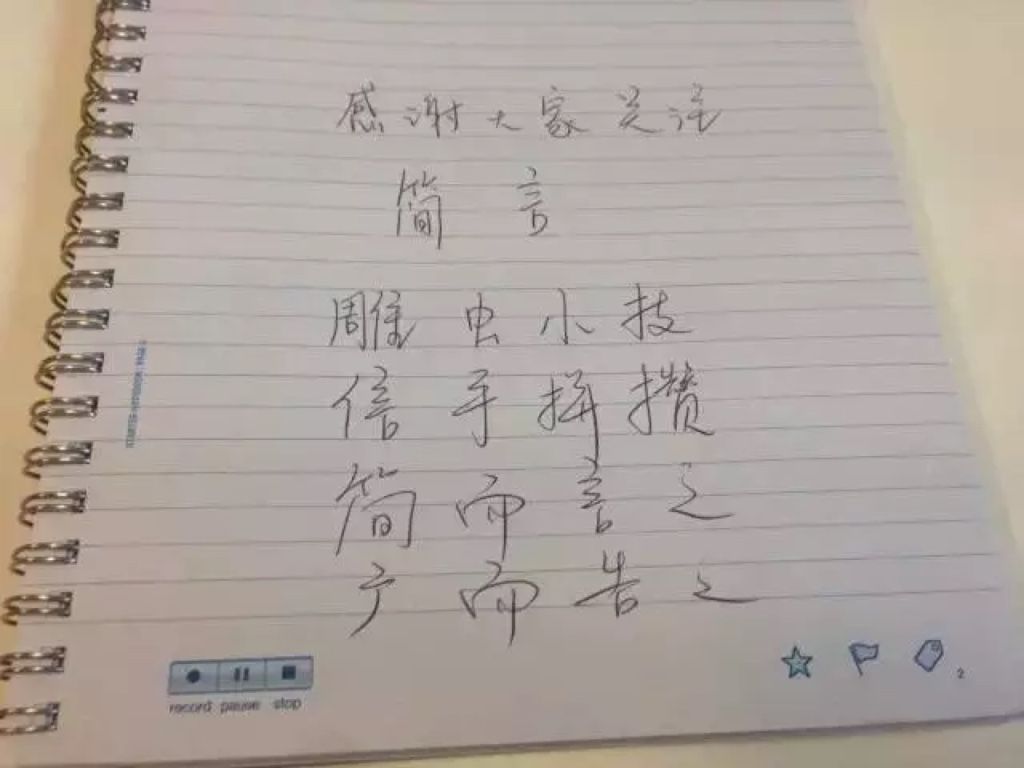 感谢大家关注
简言
雕虫小技
信手拼攒
简而言之
广而告之
record pause stop
2